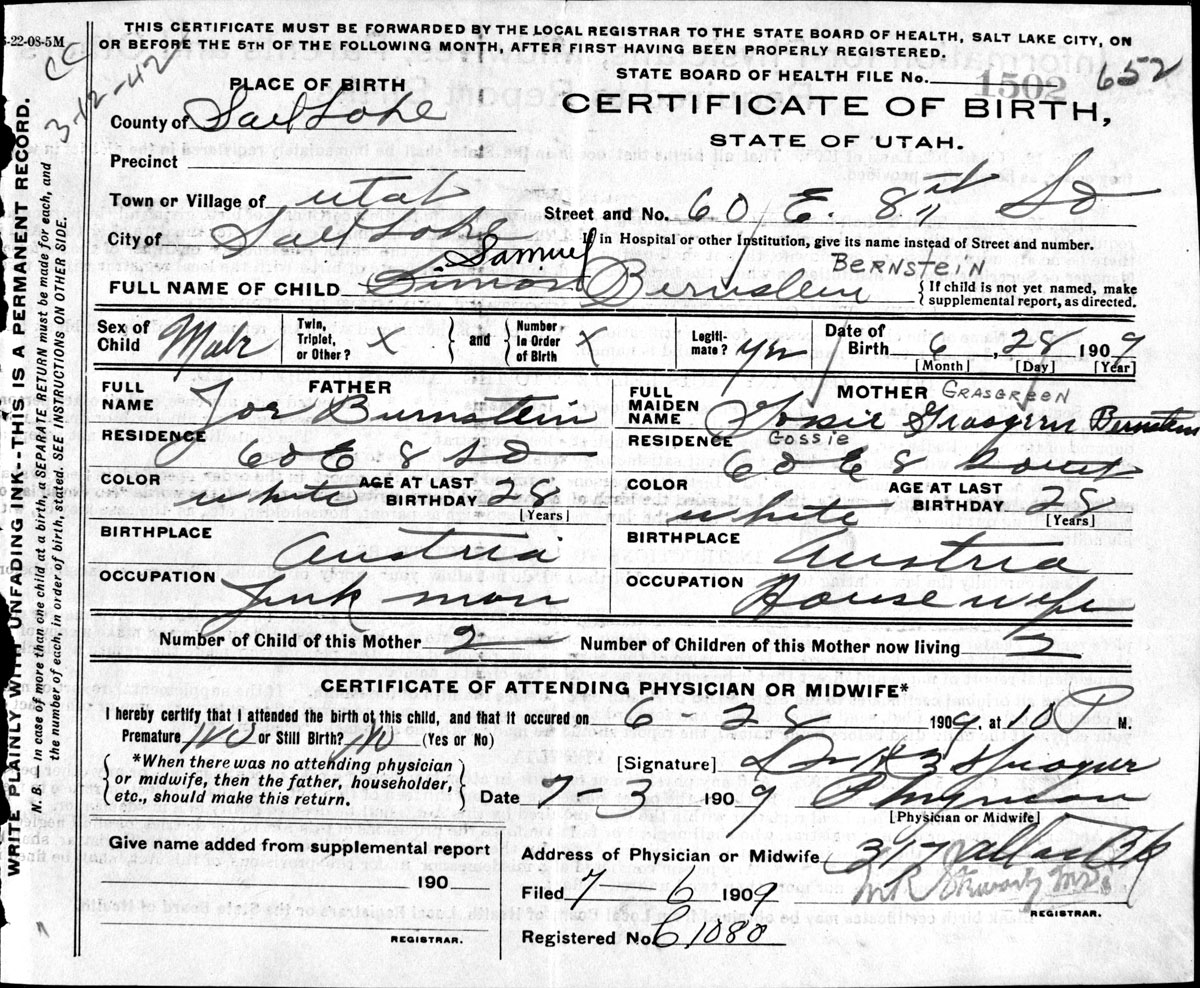 THIS CERTIFICATE MUST BE FORWARDED BY THE LOCAL REGISTRAR TO THE STATE BOARD OF HEALTH, SALT LAKE CITY, ON
OR BEFORE THE 5TH OF THE FOLLOWING MONTH, AFTER FIRST HAVING BEEN PROPERLY REGISTERED.
-22-08-5M
CC
3-12-42
STATE BOARD OF HEALTH FILE No. 1502 652
PLACE OF BIRTH
CERTIFICATE OF BIRTH,
STATE OF UTAH.
County of Salt Lake
Precinct
Town or Village of Utah
Street and No. 60 E. 8th So
City of Salt Lake
If in Hospital or other Institution, give its name instead of Street and number.
Samuel
BERNSTEIN
FULL NAME OF CHILD Simon Bernstein
{ If child is not yet named, make
supplemental report, as directed.
Sex of Child Male
Twin, Triplet, or Other? X
{ and }
Number in Order of Birth X
Legiti-mate? yes
Date of Birth 6, 28 1909
[Month] [Day] [Year]
FATHER
FULL NAME Joe Burnstein
RESIDENCE 60 E 8 So
COLOR white
AGE AT LAST BIRTHDAY 28
[Years]
BIRTHPLACE Austria
OCCUPATION Junk man
MOTHER GRASGREEN
FULL MAIDEN NAME Gossie Grasgrun Bernstein
RESIDENCE Gossie
60 E 8 South
COLOR white
AGE AT LAST BIRTHDAY 28
[Years]
BIRTHPLACE Austria
OCCUPATION Housewife
Number of Child of this Mother 2
Number of Children of this Mother now living
CERTIFICATE OF ATTENDING PHYSICIAN OR MIDWIFE*
I hereby certify that I attended the birth of this child, and that it occured on 6-28 1909, at 10 P M.
Premature No or Still Birth? No (Yes or No)
{ *When there was no attending physician
or midwife, then the father, householder,
etc., should make this return. }
[Signature] Dr
Date 7-3 1909 Physician
[Physician or Midwife]
Give name added from supplemental report
190
REGISTRAR.
Address of Physician or Midwife
Filed 7 6 1909
REGISTRAR.
Registered No. 61080
WRITE PLAINLY WITH UNFADING INK--THIS IS A PERMANENT RECORD.
N. B. In case of more than one child at a birth a SEPARATE RETURN must be made for each, and
the number of each, in order of birth, stated. SEE INSTRUCTIONS ON OTHER SIDE.